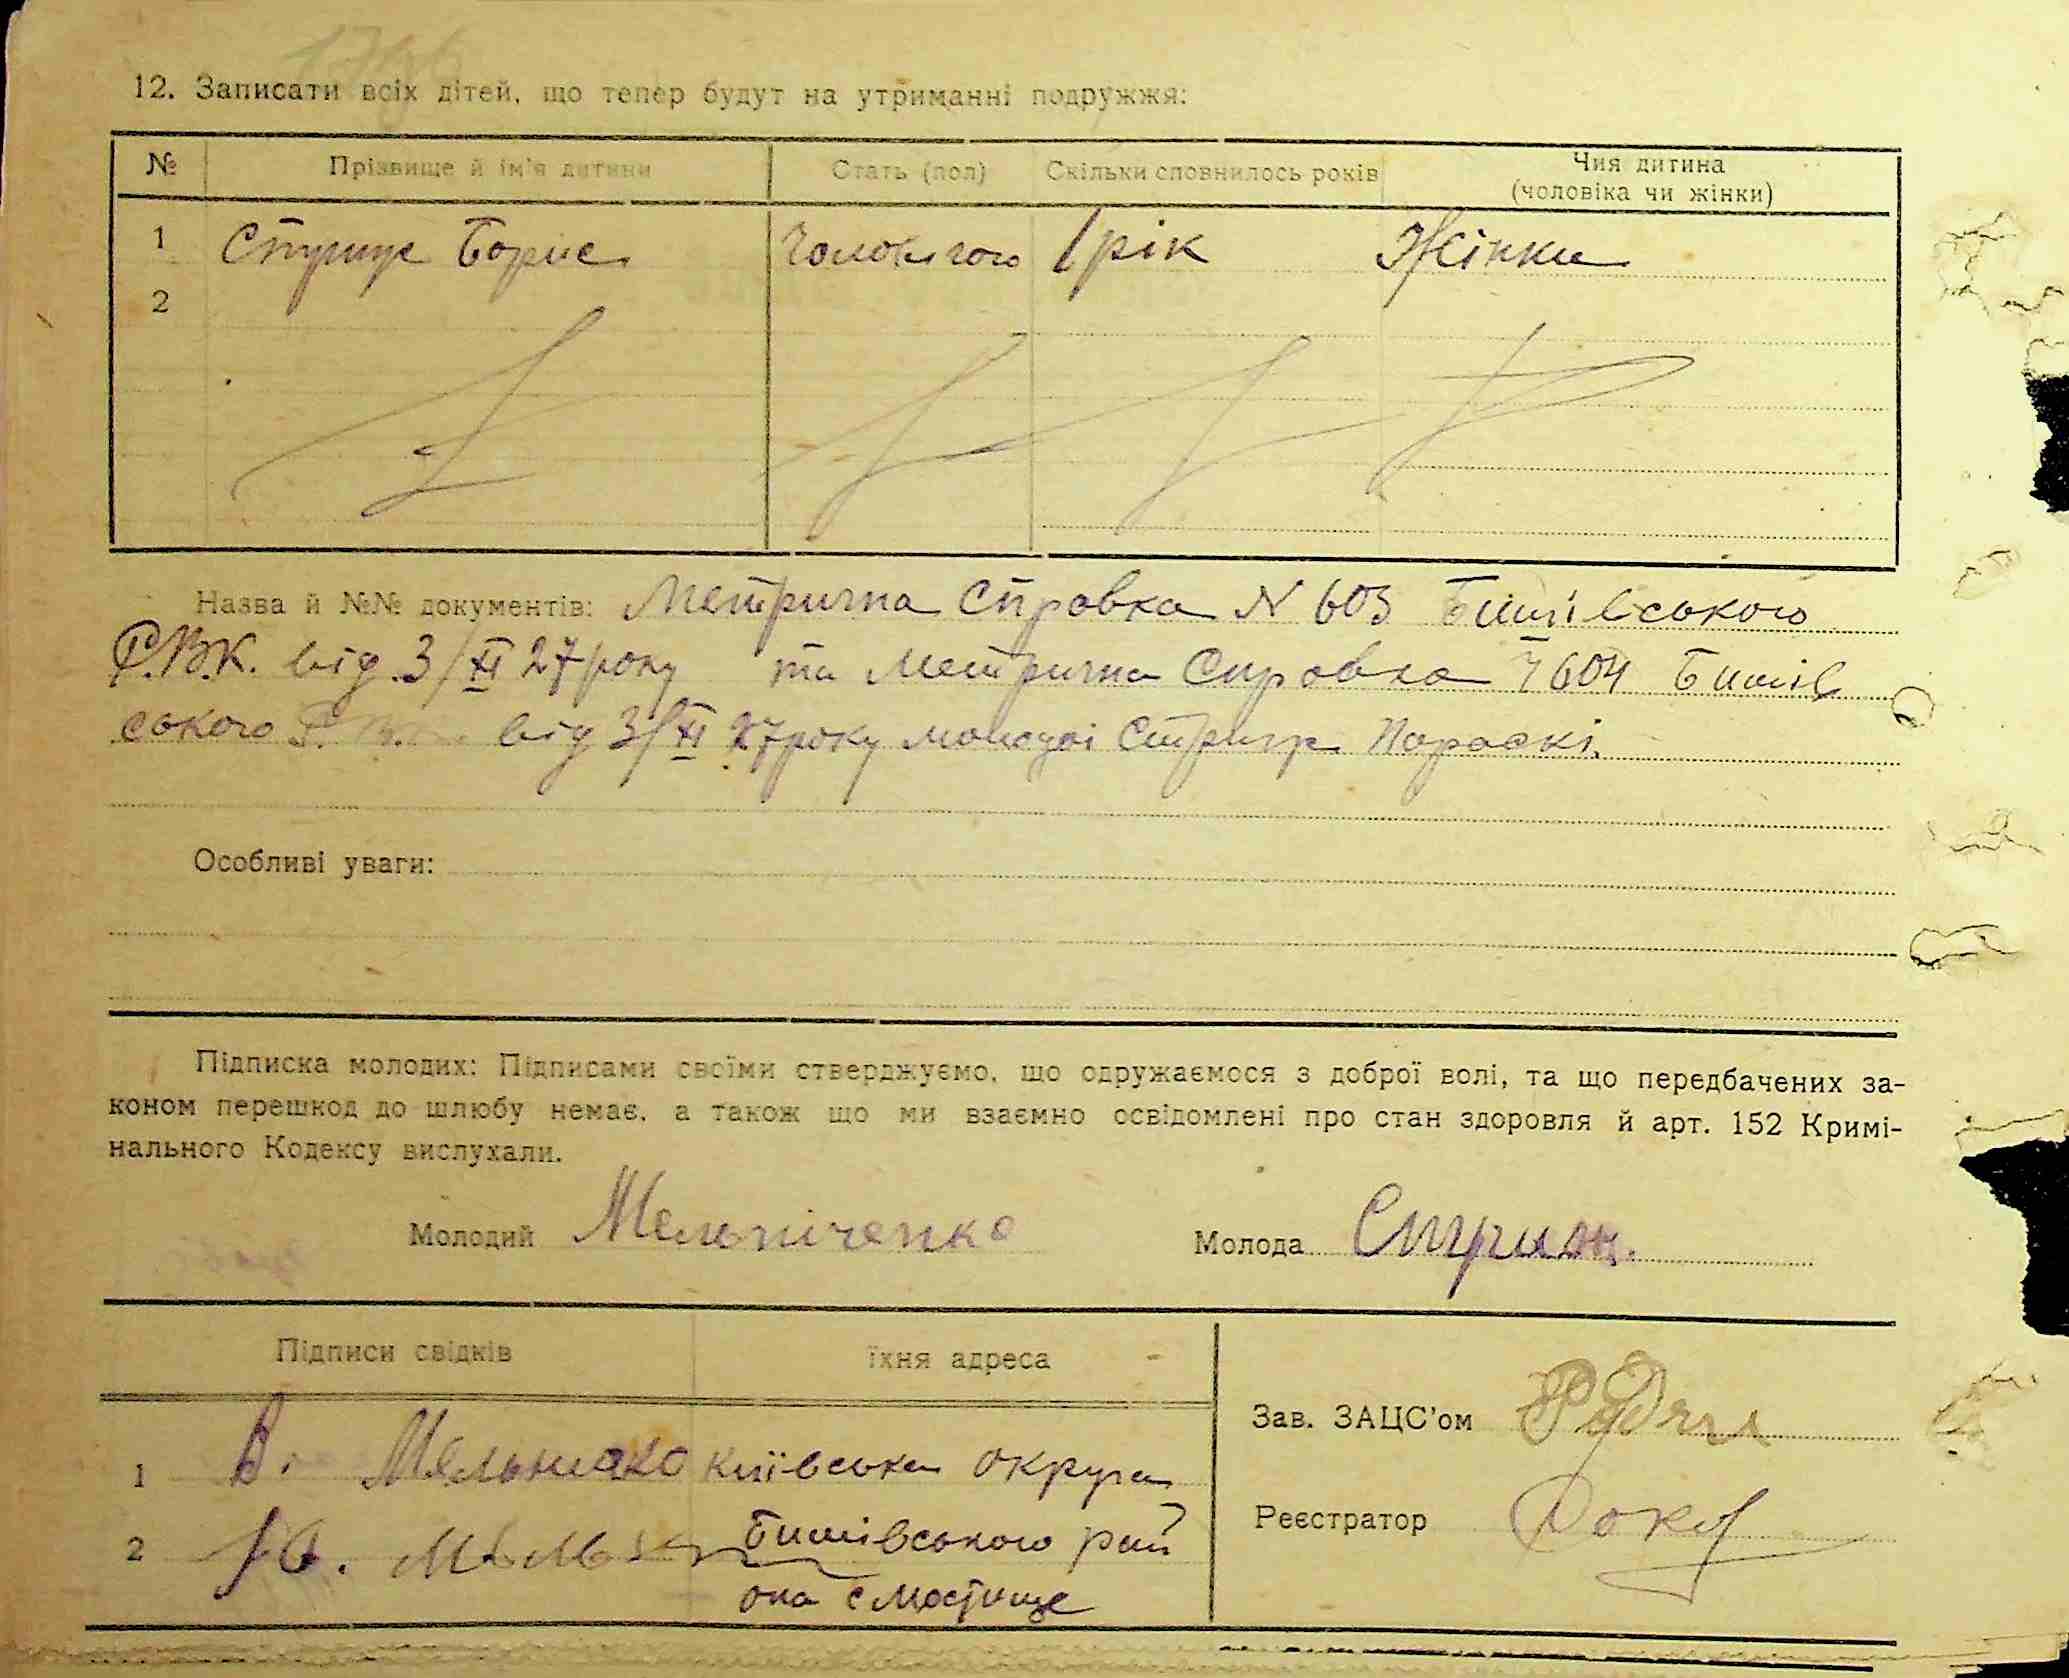 12. Записати всіх дітей, що тепер будут на утриманні подружжя:
№ Прізвище й ім'я дитини Стать (пол) Скільки сповнилось років Чия дитина
(чоловіка чи жінки)
1 Борис 1 рік Жінки
2
Назва й №№ документів: Метрична Справка N 603 Бишівського
Р.В.К. від 3/XI 27 року та Метрична Справка 604 Бишів
ського від 3/XI 27 року молодої Параскі.
Особливі уваги:
Підписка молодих: Підписами своїми стверджуємо, що одружаємося з доброї волі, та що передбачених за-
коном перешкод до шлюбу немає, а також що ми взаємно освідомлені про стан здоровля й арт. 152 Кримі-
нального Кодексу вислухали.
Молодий Мельніченко Молода
Підписи свідків їхня адреса
Зав. ЗАЦС'ом
1 В. київська округа
Реєстратор
2 Бишівського рай
она с Мостище